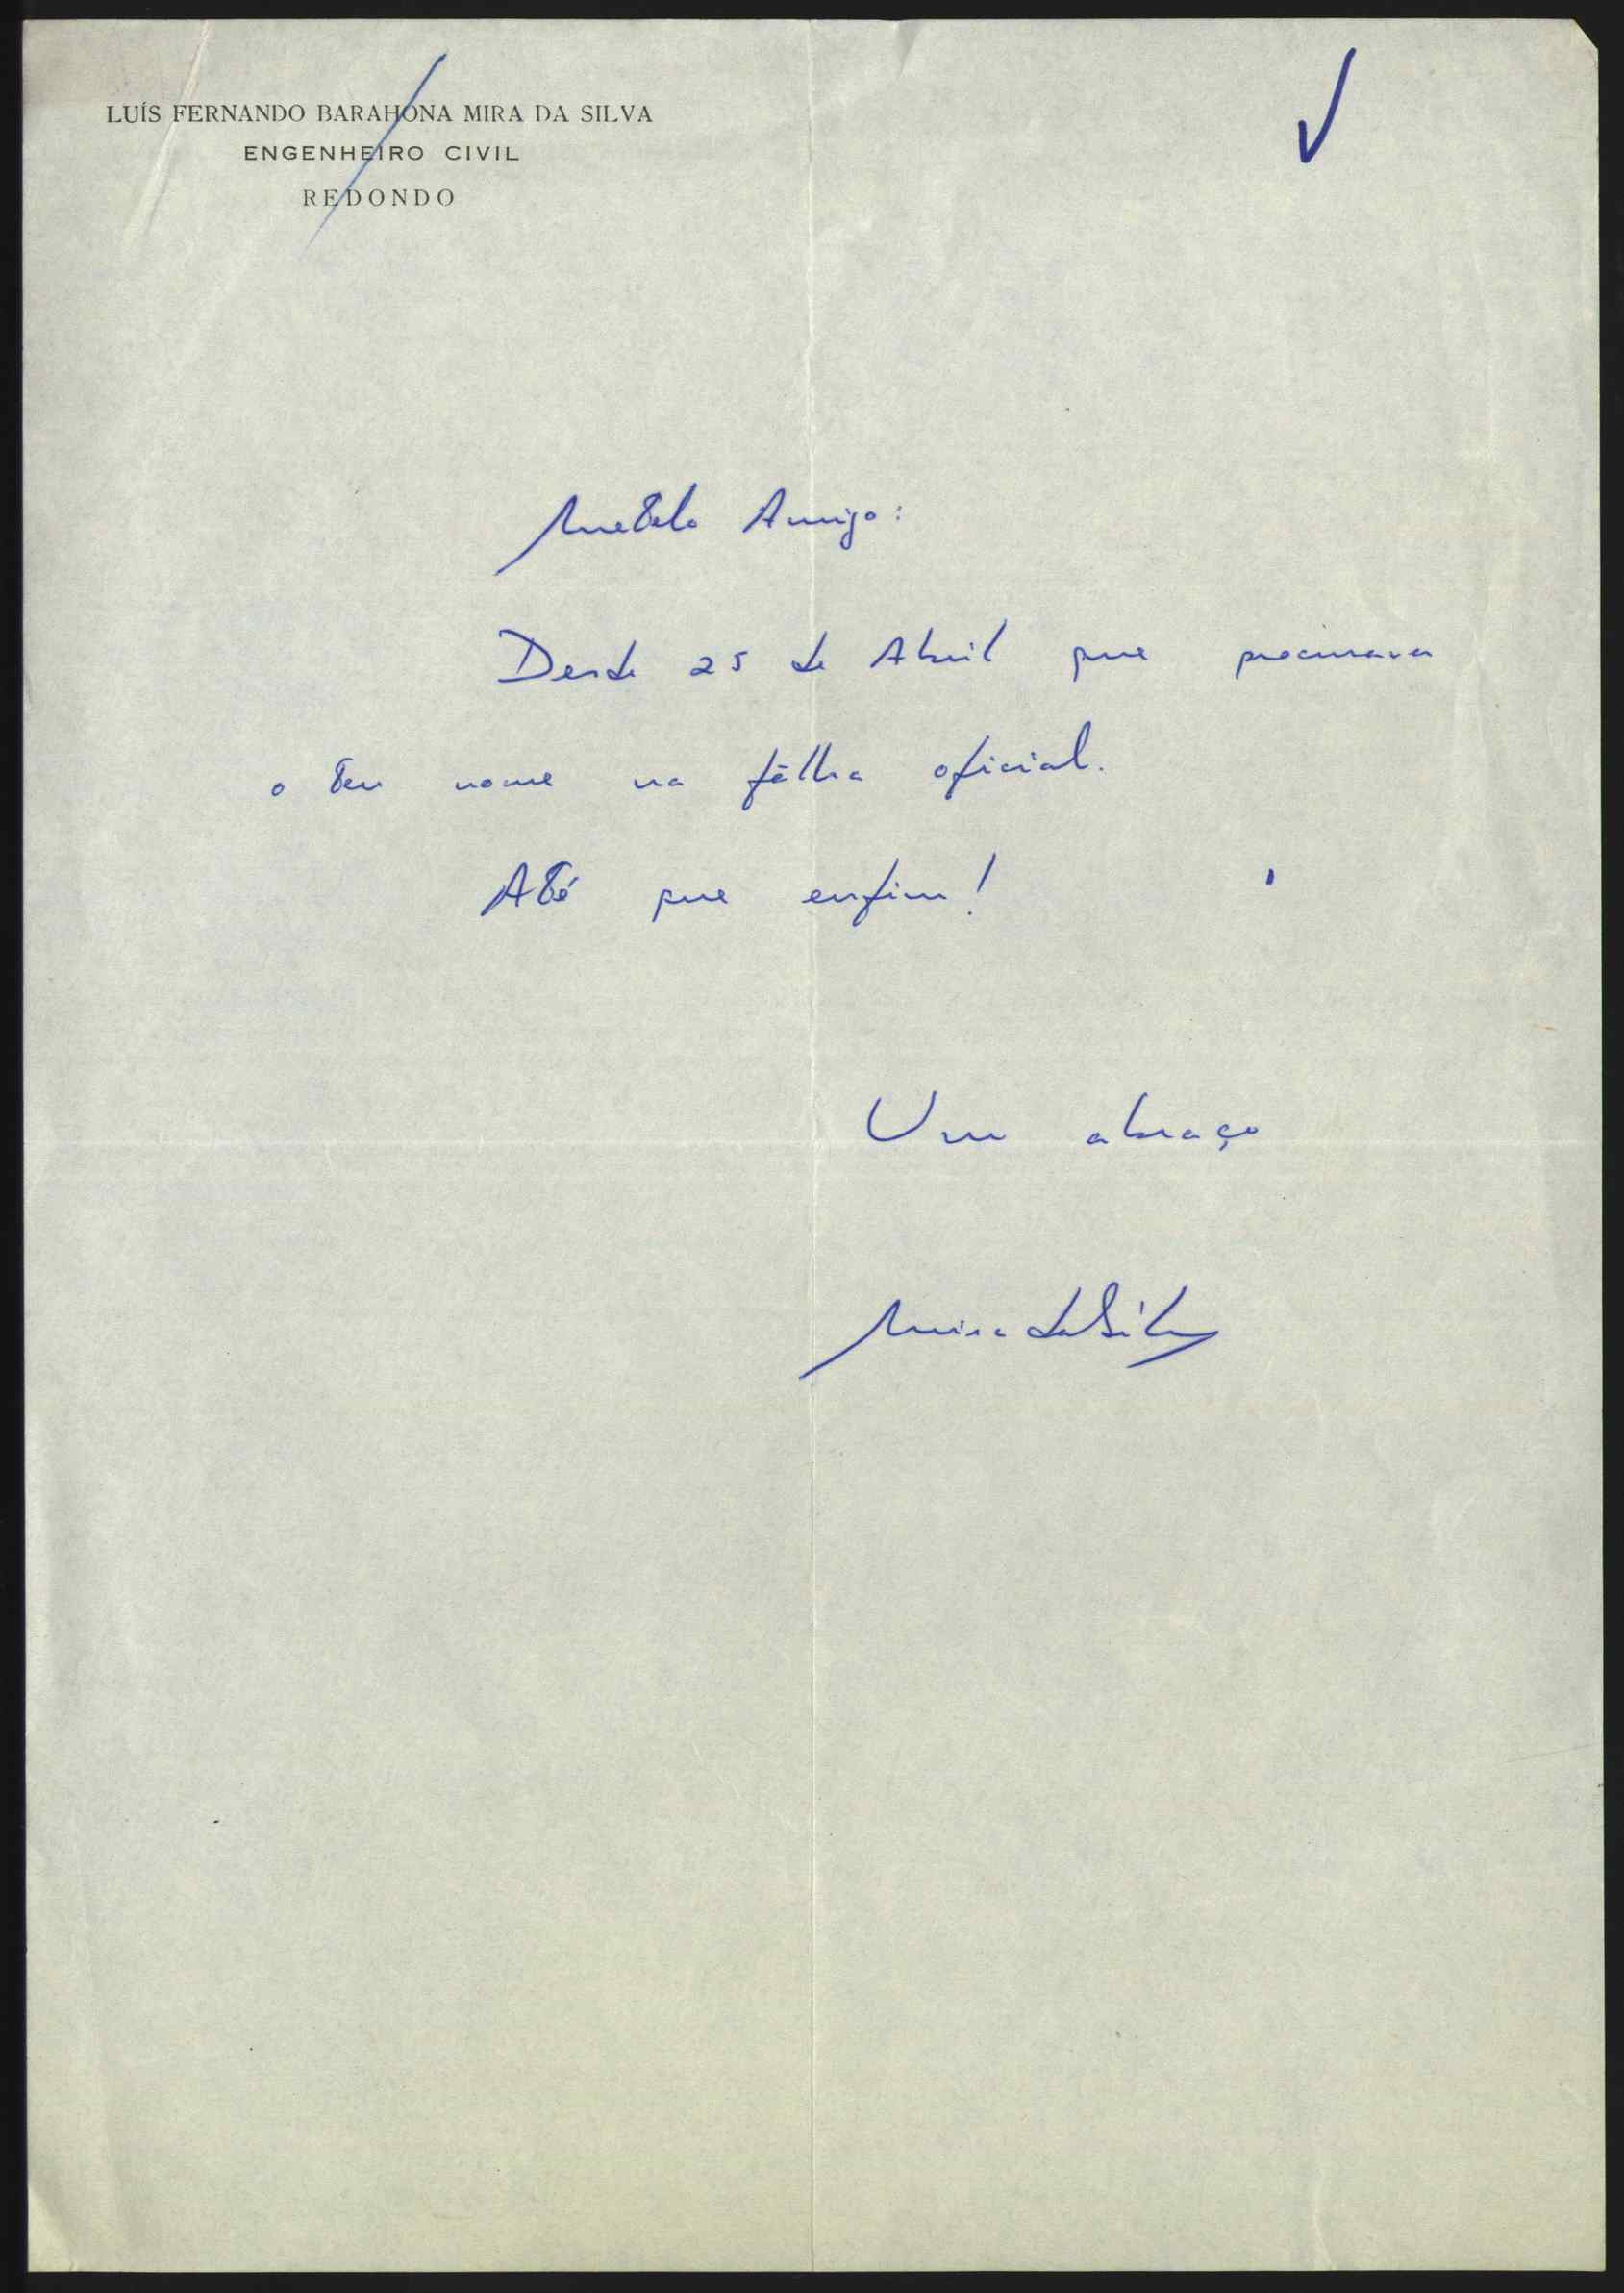 LUÍS FERNANDO BARAHONA MIRA DA SILVA
ENGENHEIRO CIVIL
REDONDO
Metelo Amigo:
Desde 25 de Abril que procurava
o teu nome na fôlha oficial.
Até que enfim!
Um abraço
Mira da Silva